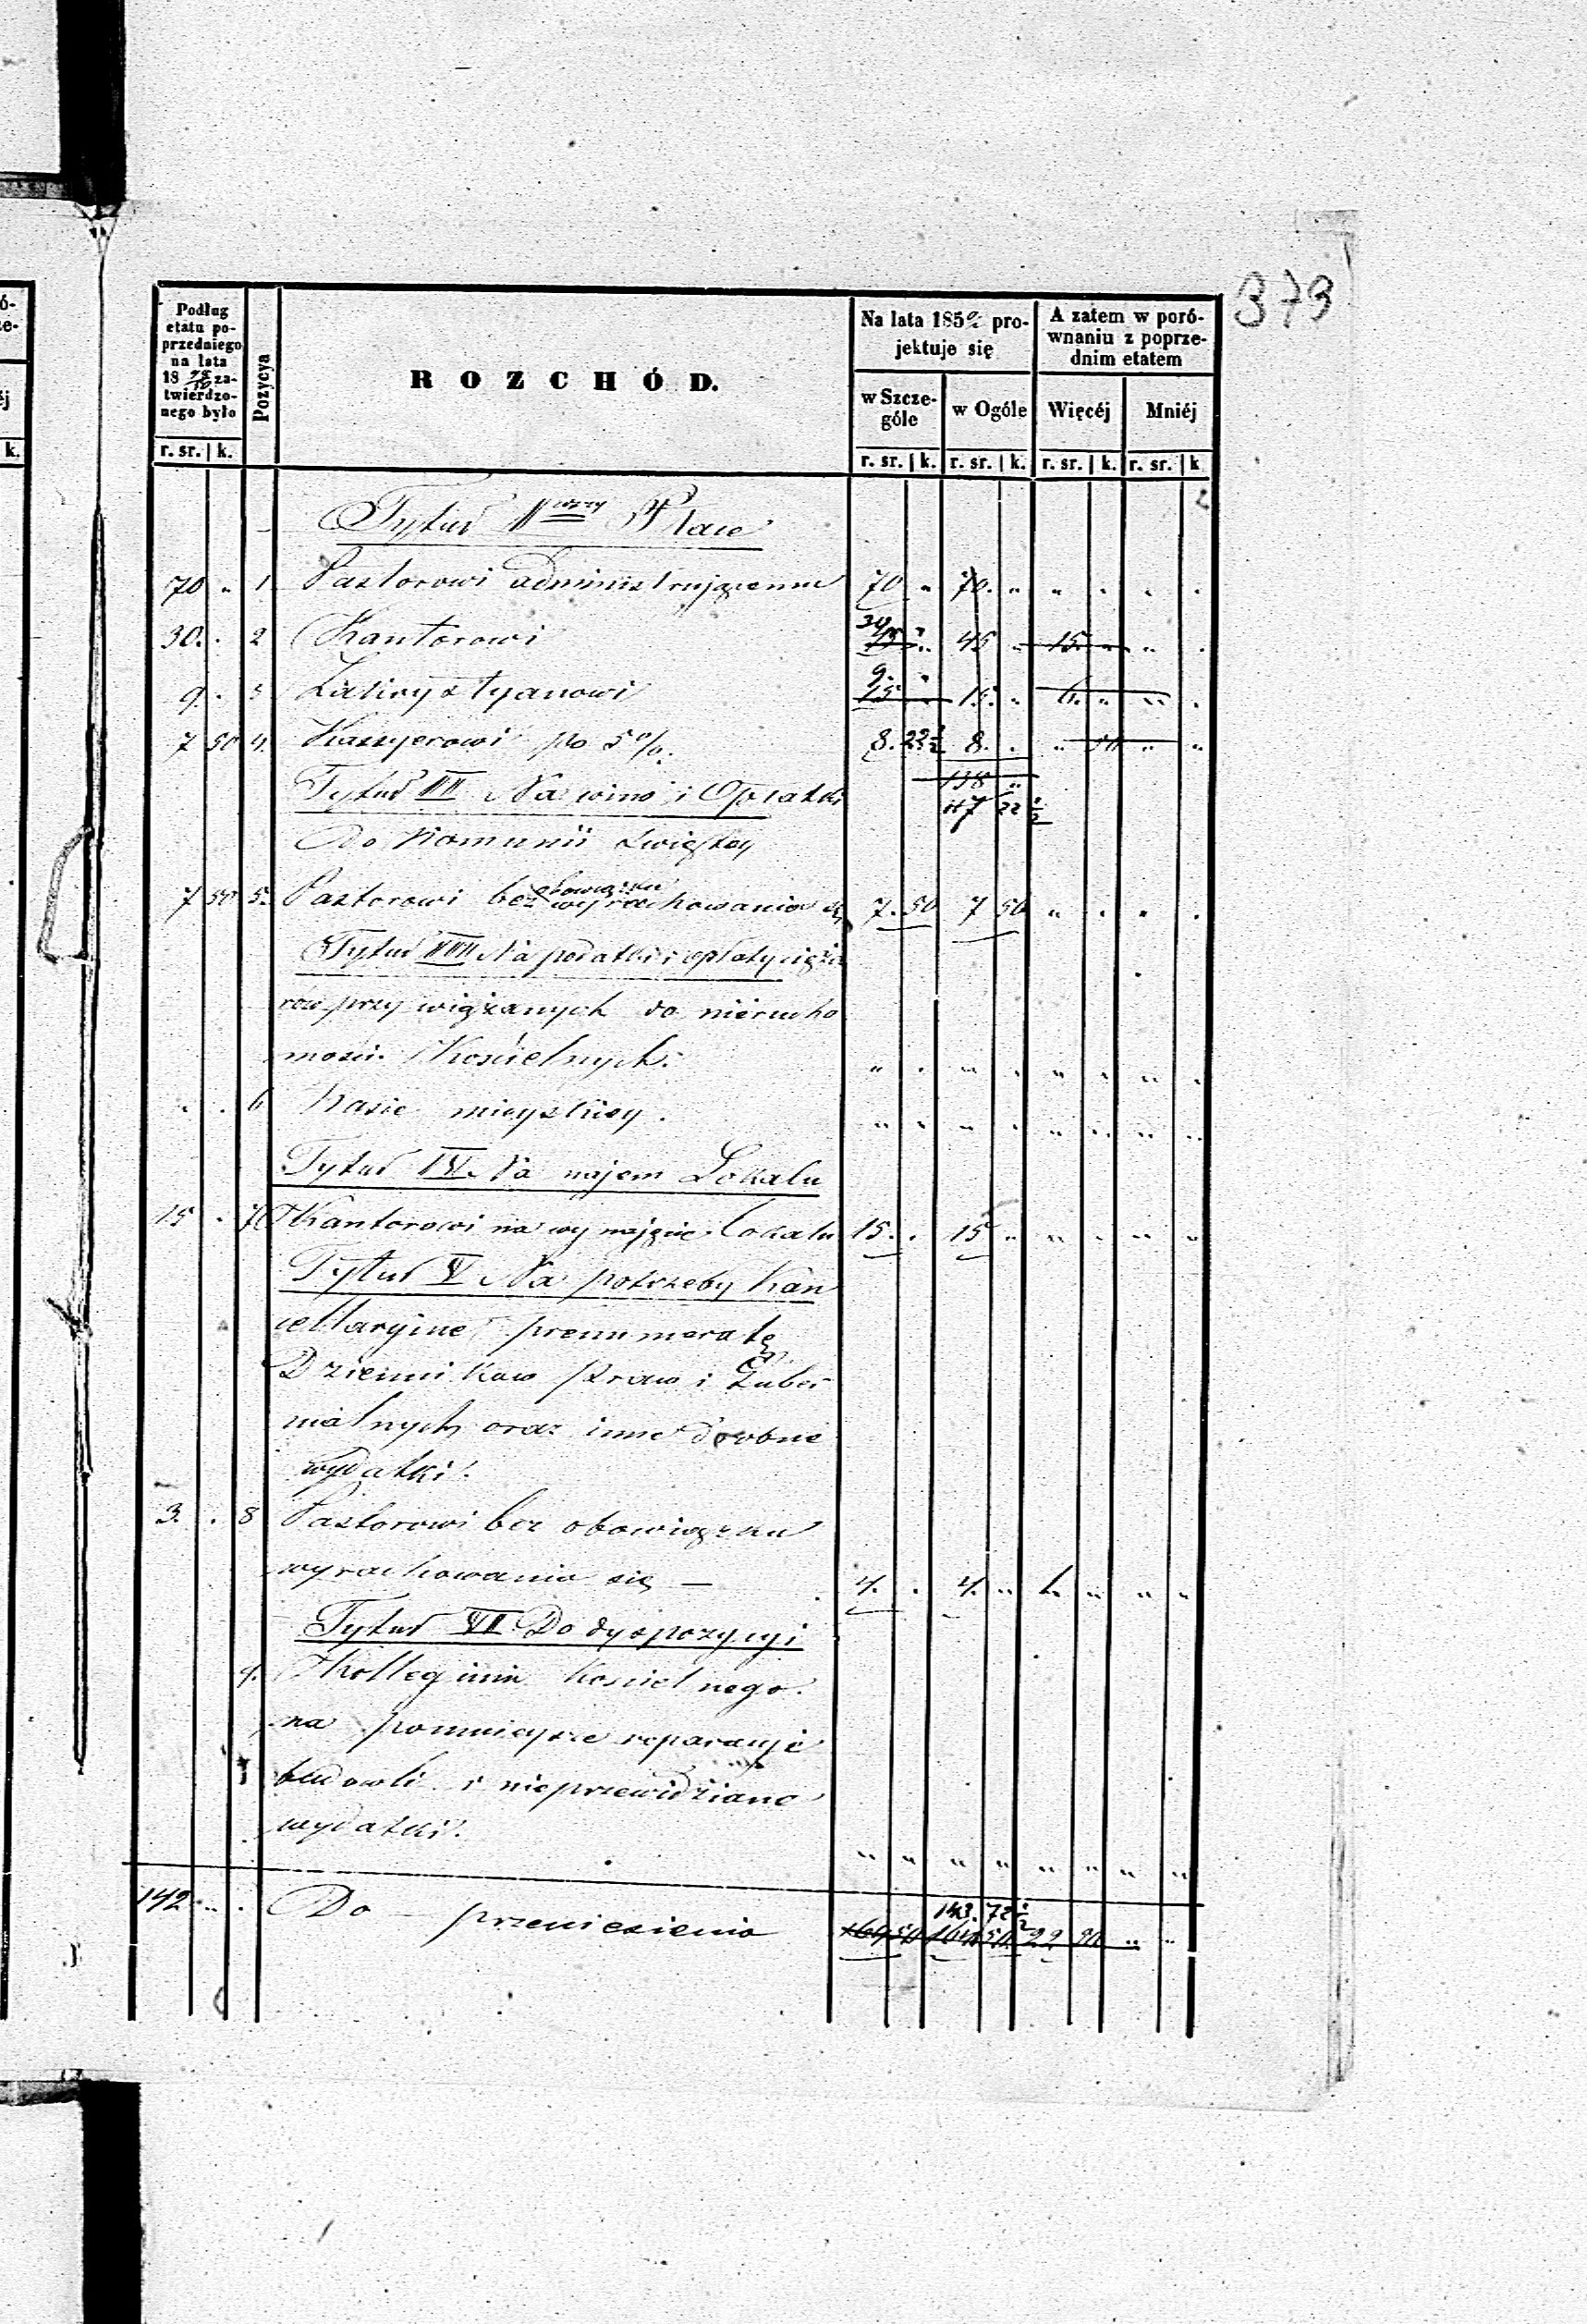 379
Podług etatu poprzedniego na lata 18 zatwierdzonego było
Pozycya
ROZCHÓD.
Na lata 185 projektuje się
A zatem w porównaniu z poprzednim etatem
w Szczególe
w Ogóle
Więcéj
Mniéj
r. sr. | k. r. sr. | k. r. sr. | k. r. sr. | k. r. sr. | k
Tytuł Iwszy Płace
70 " 1 Pastorowi administrującemu 70 " 70. " " . " .
30. . 2 Kantorowi 30 " 45 " 15 " " .
9. . 3 Zakrystyanowi 9. " 15 " 15. " 6. " " .
7 50 4. Kassyerowi po 5%. 8. 22 1/2 8. . " 50 " "
Tytuł II Na wino i Opłatki 138 "
117 22 1/2
do Komunii Świętey
7 50 5. Pastorowi bez obowiązku wyrachowania się 7. 50 7 50 " . " .
Tytuł III Na podatki i opłaty cięża
rów przywiązanych do nierucho
mości Kościelnych. " . " . " . " .
. . 6 Kasie mieyskiey. " . " . " " " "
Tytuł IV Na najem Lokalu
15 . 7 Kantorowi na wynajęcie lokalu 15. . 15 " " . " "
Tytuł V Na potrzeby Kan
cellaryine, prenumeratę
Dzienników Praw i Guber
nialnych oraz inne drobne
wydatki.
3. . 8 Pastorowi bez obowiązku
wyrachowania się — 4. . 4. " 1. " " "
Tytuł VI Do dyspozycyi
9. Kollegium Kościelnego
na pomnieysze reparacyje
budowli i nieprzewidziane
wydatki. " " " " " " " "
143. 72 1/2
142 " . Do przeniesienia 164 50 164 50 22 50 " "